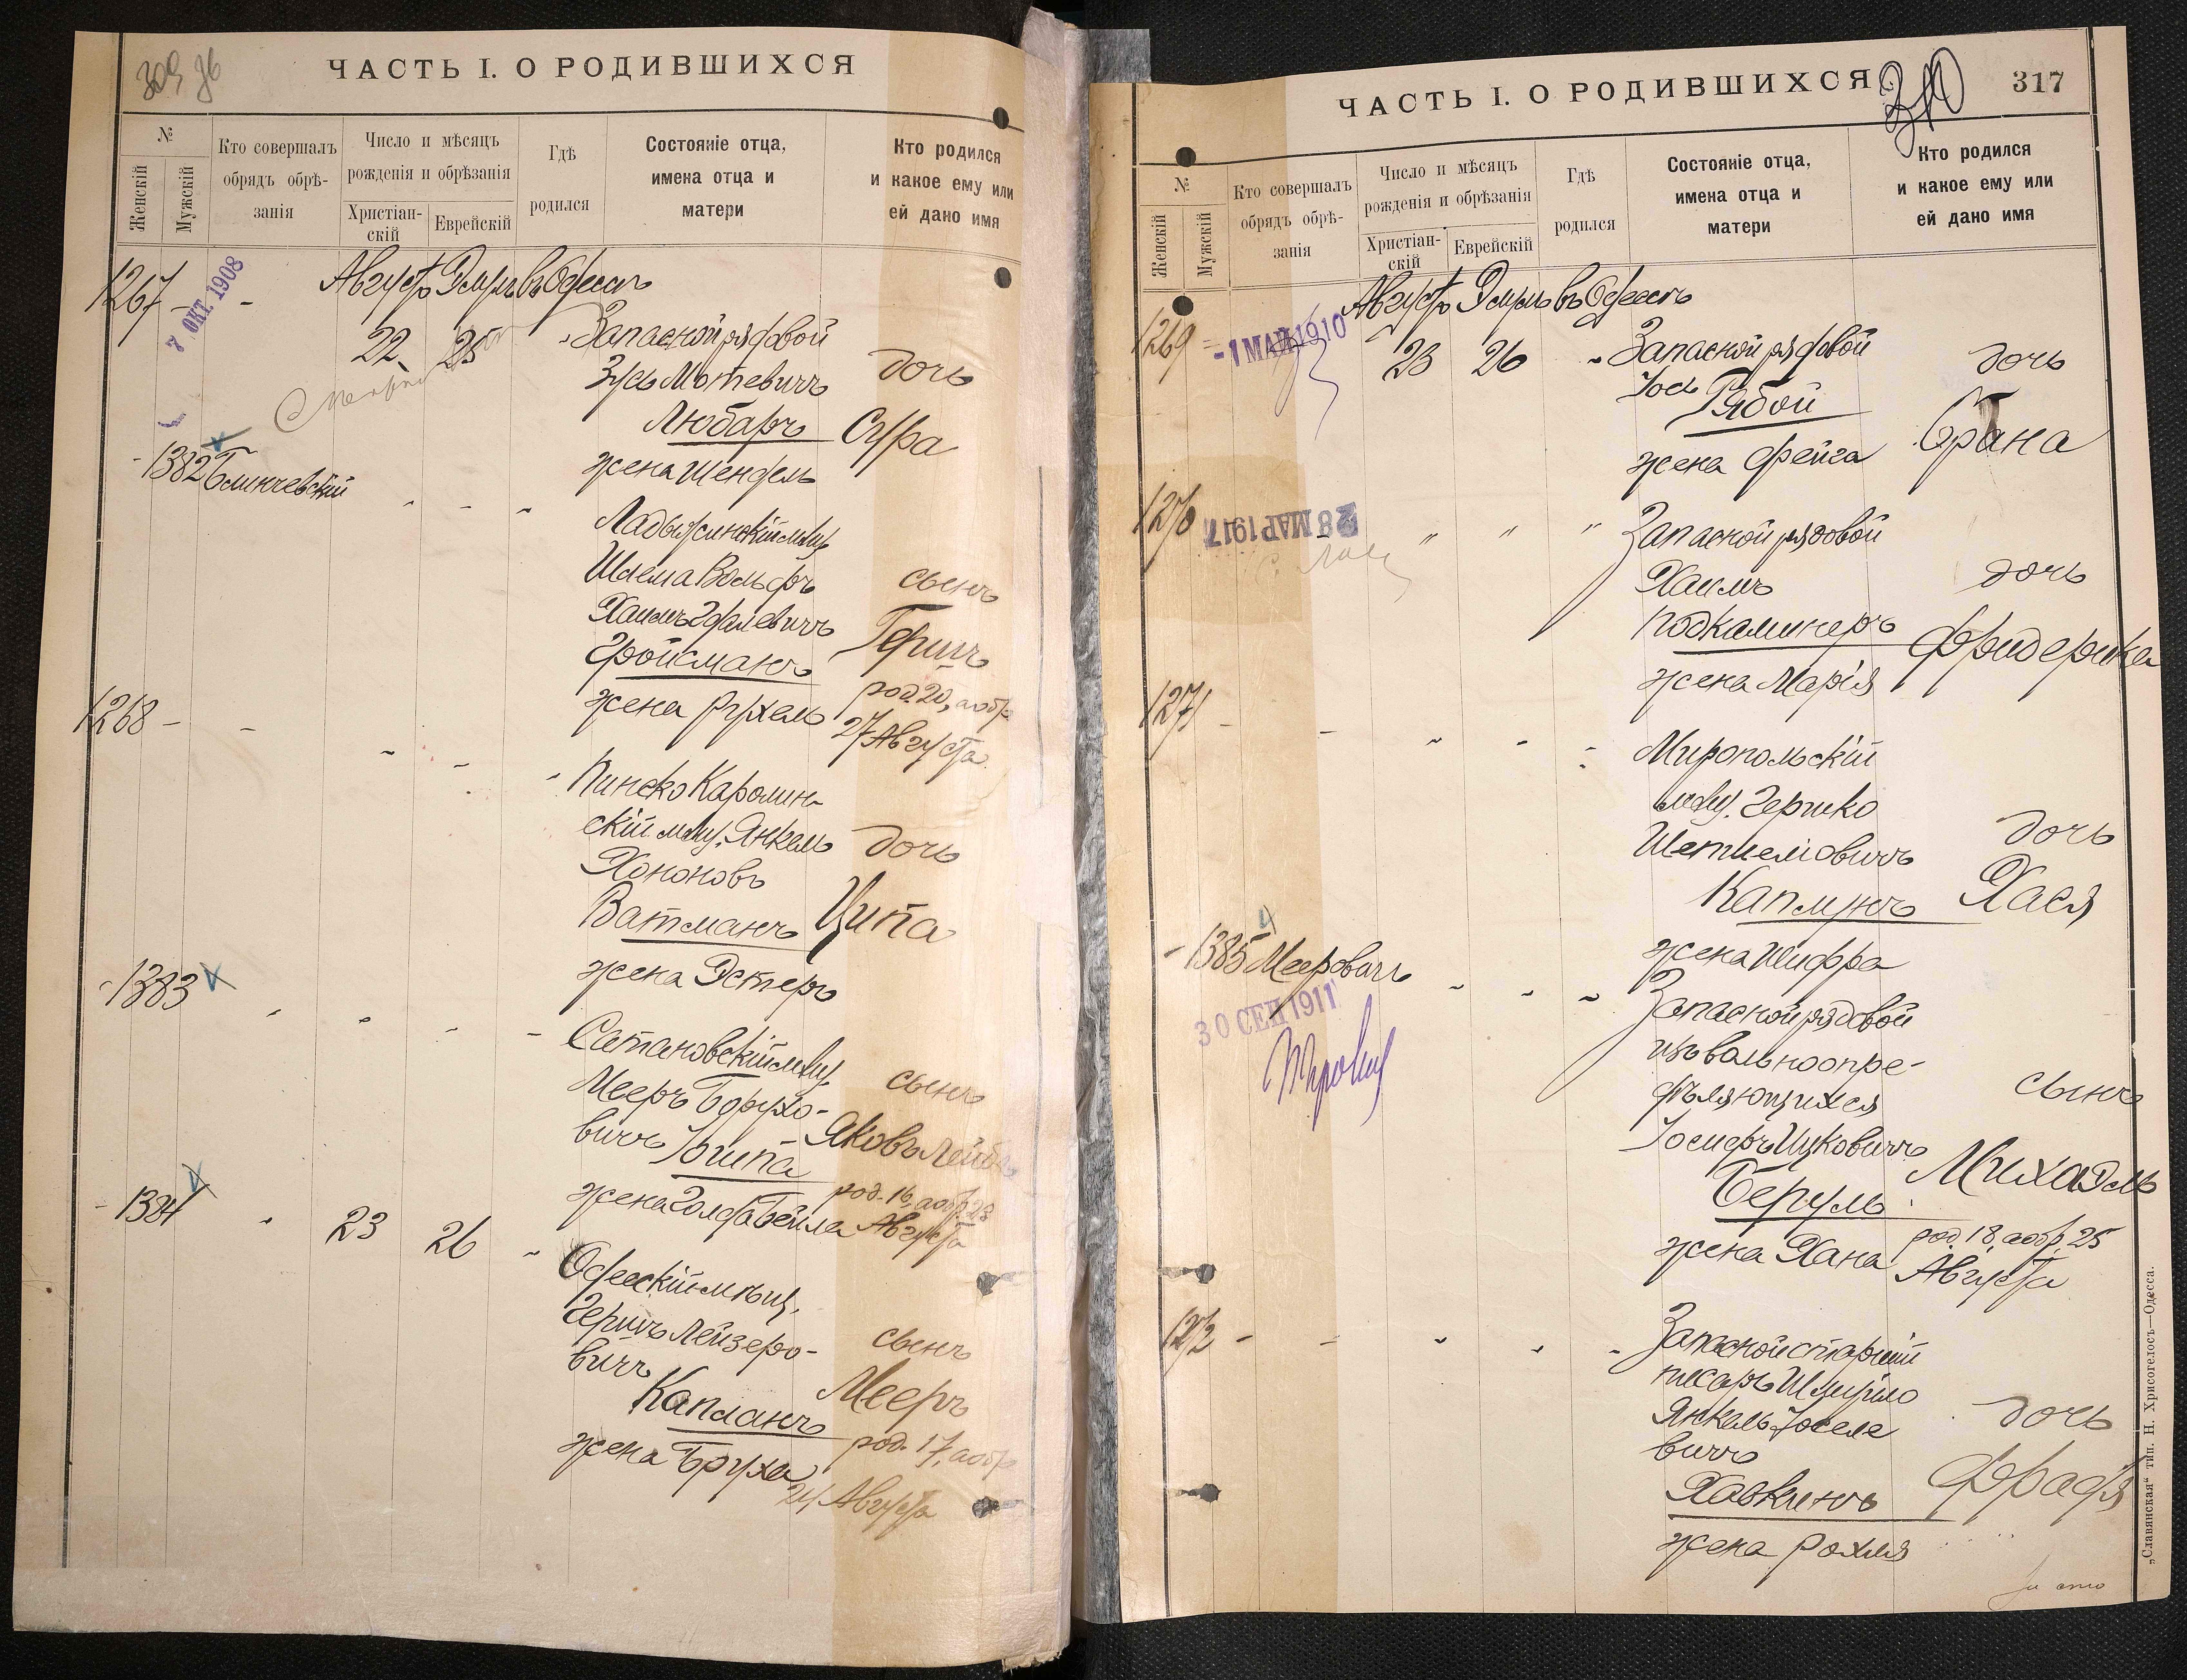 309 об
ЧАСТЬ I. О РОДИВШИХСЯ
№
Женскій
Мужскій
Кто совершалъ
обрядъ обрѣ-
занія
Число и мѣсяцъ
рожденія и обрѣзанія
Христіан-
скій
Еврейскій
Гдѣ
родился
Состояніе отца,
имена отца и
матери
Кто родился
и какое ему или
ей дано имя
1267 - -
7 ОКТ. 1908
Августъ Элулъ въ Одессѣ
22 25
Запасной рядовой
Зусь Мотевичъ
Любаръ
жена Шендель
дочь
Сура
- 1382 Блинчевскій
Ладыжинскій мѣщ.
Шлема Вольфъ
Хаимъ
Гройсманъ
жена Рухель
сынъ
Гершъ
род. 20, а обр.
27 Августа
1268 - -
Пинско Каролин-
скій мѣщ. Янкель
Хононовъ
Ватманъ
жена Эстеръ
дочь
Ципа
- 1383
Сатановскій мѣщ.
Мееръ Борухо-
вичъ
жена Голда Бейла
сынъ
Яковъ Лейбъ
род. 16, а обр. 23
Августа
- 1384
23 26
Одесскій мѣщ.
Гершъ Лейзеро-
вичъ
Капланъ
жена Бруха
сынъ
Мееръ
род. 17, а обр.
24 Августа
ЧАСТЬ I. О РОДИВШИХСЯ
310
317
№
Женскій
Мужскій
Кто совершалъ
обрядъ обрѣ-
занія
Число и мѣсяцъ
рожденія и обрѣзанія
Христіан-
скій
Еврейскій
Гдѣ
родился
Состояніе отца,
имена отца и
матери
Кто родился
и какое ему или
ей дано имя
1269
- 1 МАЙ 1910
Августъ Элулъ въ Одессѣ
23 26
Запасной рядовой
Іось Рябой
жена Фейга
дочь
Брана
1270
28 МАР 1917
" " "
Запасной рядовой
Хаимъ
Подкаминеръ
жена Марія
дочь
Фридерика
1271 - -
Миропольскій
мѣщ. Гершко
Каплунъ
жена Шифра
дочь
Хася
- 1385 Мееровичъ
30 СЕН 1911
Запасной рядовой
изъ вольноопре-
дѣляющихся
Іосифъ Ицковичъ
Беруль
жена Хана
сынъ
Михаэль
род. 18, а обр. 25
Августа
1272 - -
Запасной старшій
писарь Шмуйло
Янкель Іоселе
вичъ
Хавкинъ
жена Рохля
дочь
Фрадя
„Славянская“ тип. Н. Хрисогелосъ—Одесса.